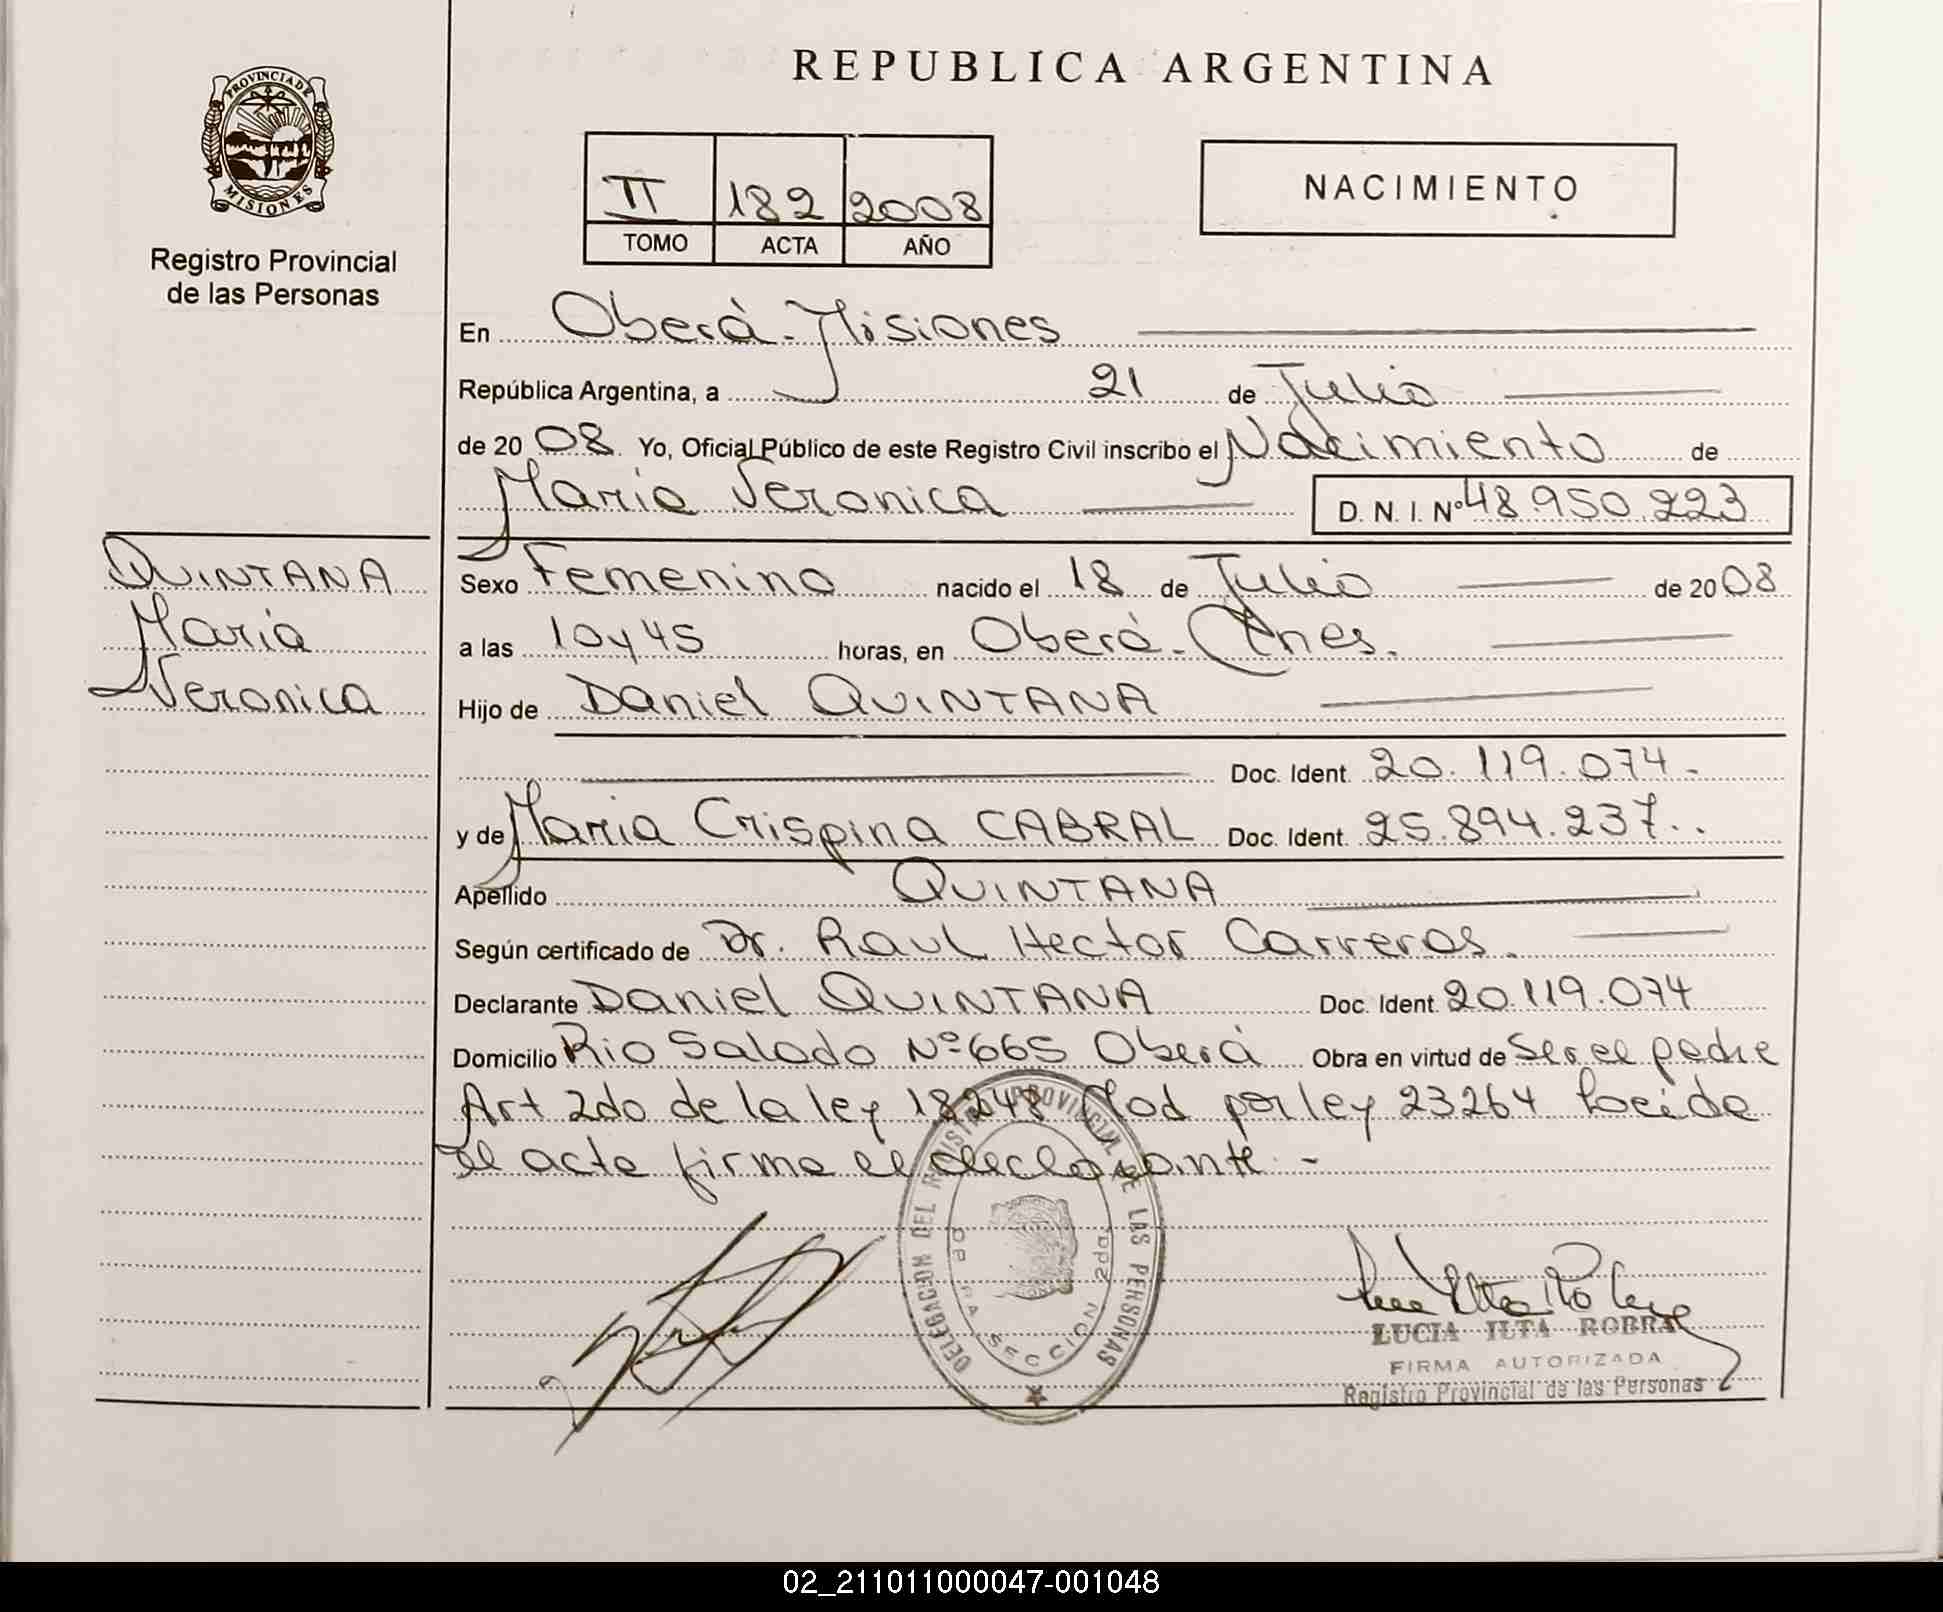 REPUBLICA ARGENTINA
PROVINCIA DE MISIONES
Registro Provincial
de las Personas
II 182 2008
TOMO ACTA AÑO
NACIMIENTO
En Oberá - Misiones
República Argentina, a 21 de Julio
de 2008. Yo, Oficial Público de este Registro Civil inscribo el Nacimiento de
María Veronica D. N. I. Nº 48.950.223
QUINTANA
María
Veronica
Sexo Femenino nacido el 18 de Julio de 2008
a las 10 y 45 horas, en Oberá - Mnes.
Hijo de Daniel QUINTANA
Doc. Ident. 20.119.074.-
y de Maria Crispina CABRAL Doc. Ident. 25.894.237..
Apellido QUINTANA
Según certificado de Dr. Raul Hector Carreros.
Declarante Daniel QUINTANA Doc. Ident. 20.119.074
Domicilio Rio Salado Nº 665 Oberá Obra en virtud de Ser el padre
Art 2do de la ley 18248 Mod por ley 23264 Leida
el acta firma el declarante. -
DELEGACION DEL REGISTRO PROVINCIAL DE LAS PERSONAS
SECCION 2da
LUCIA ILTA ROBRA
FIRMA AUTORIZADA
Registro Provincial de las Personas
02_211011000047-001048